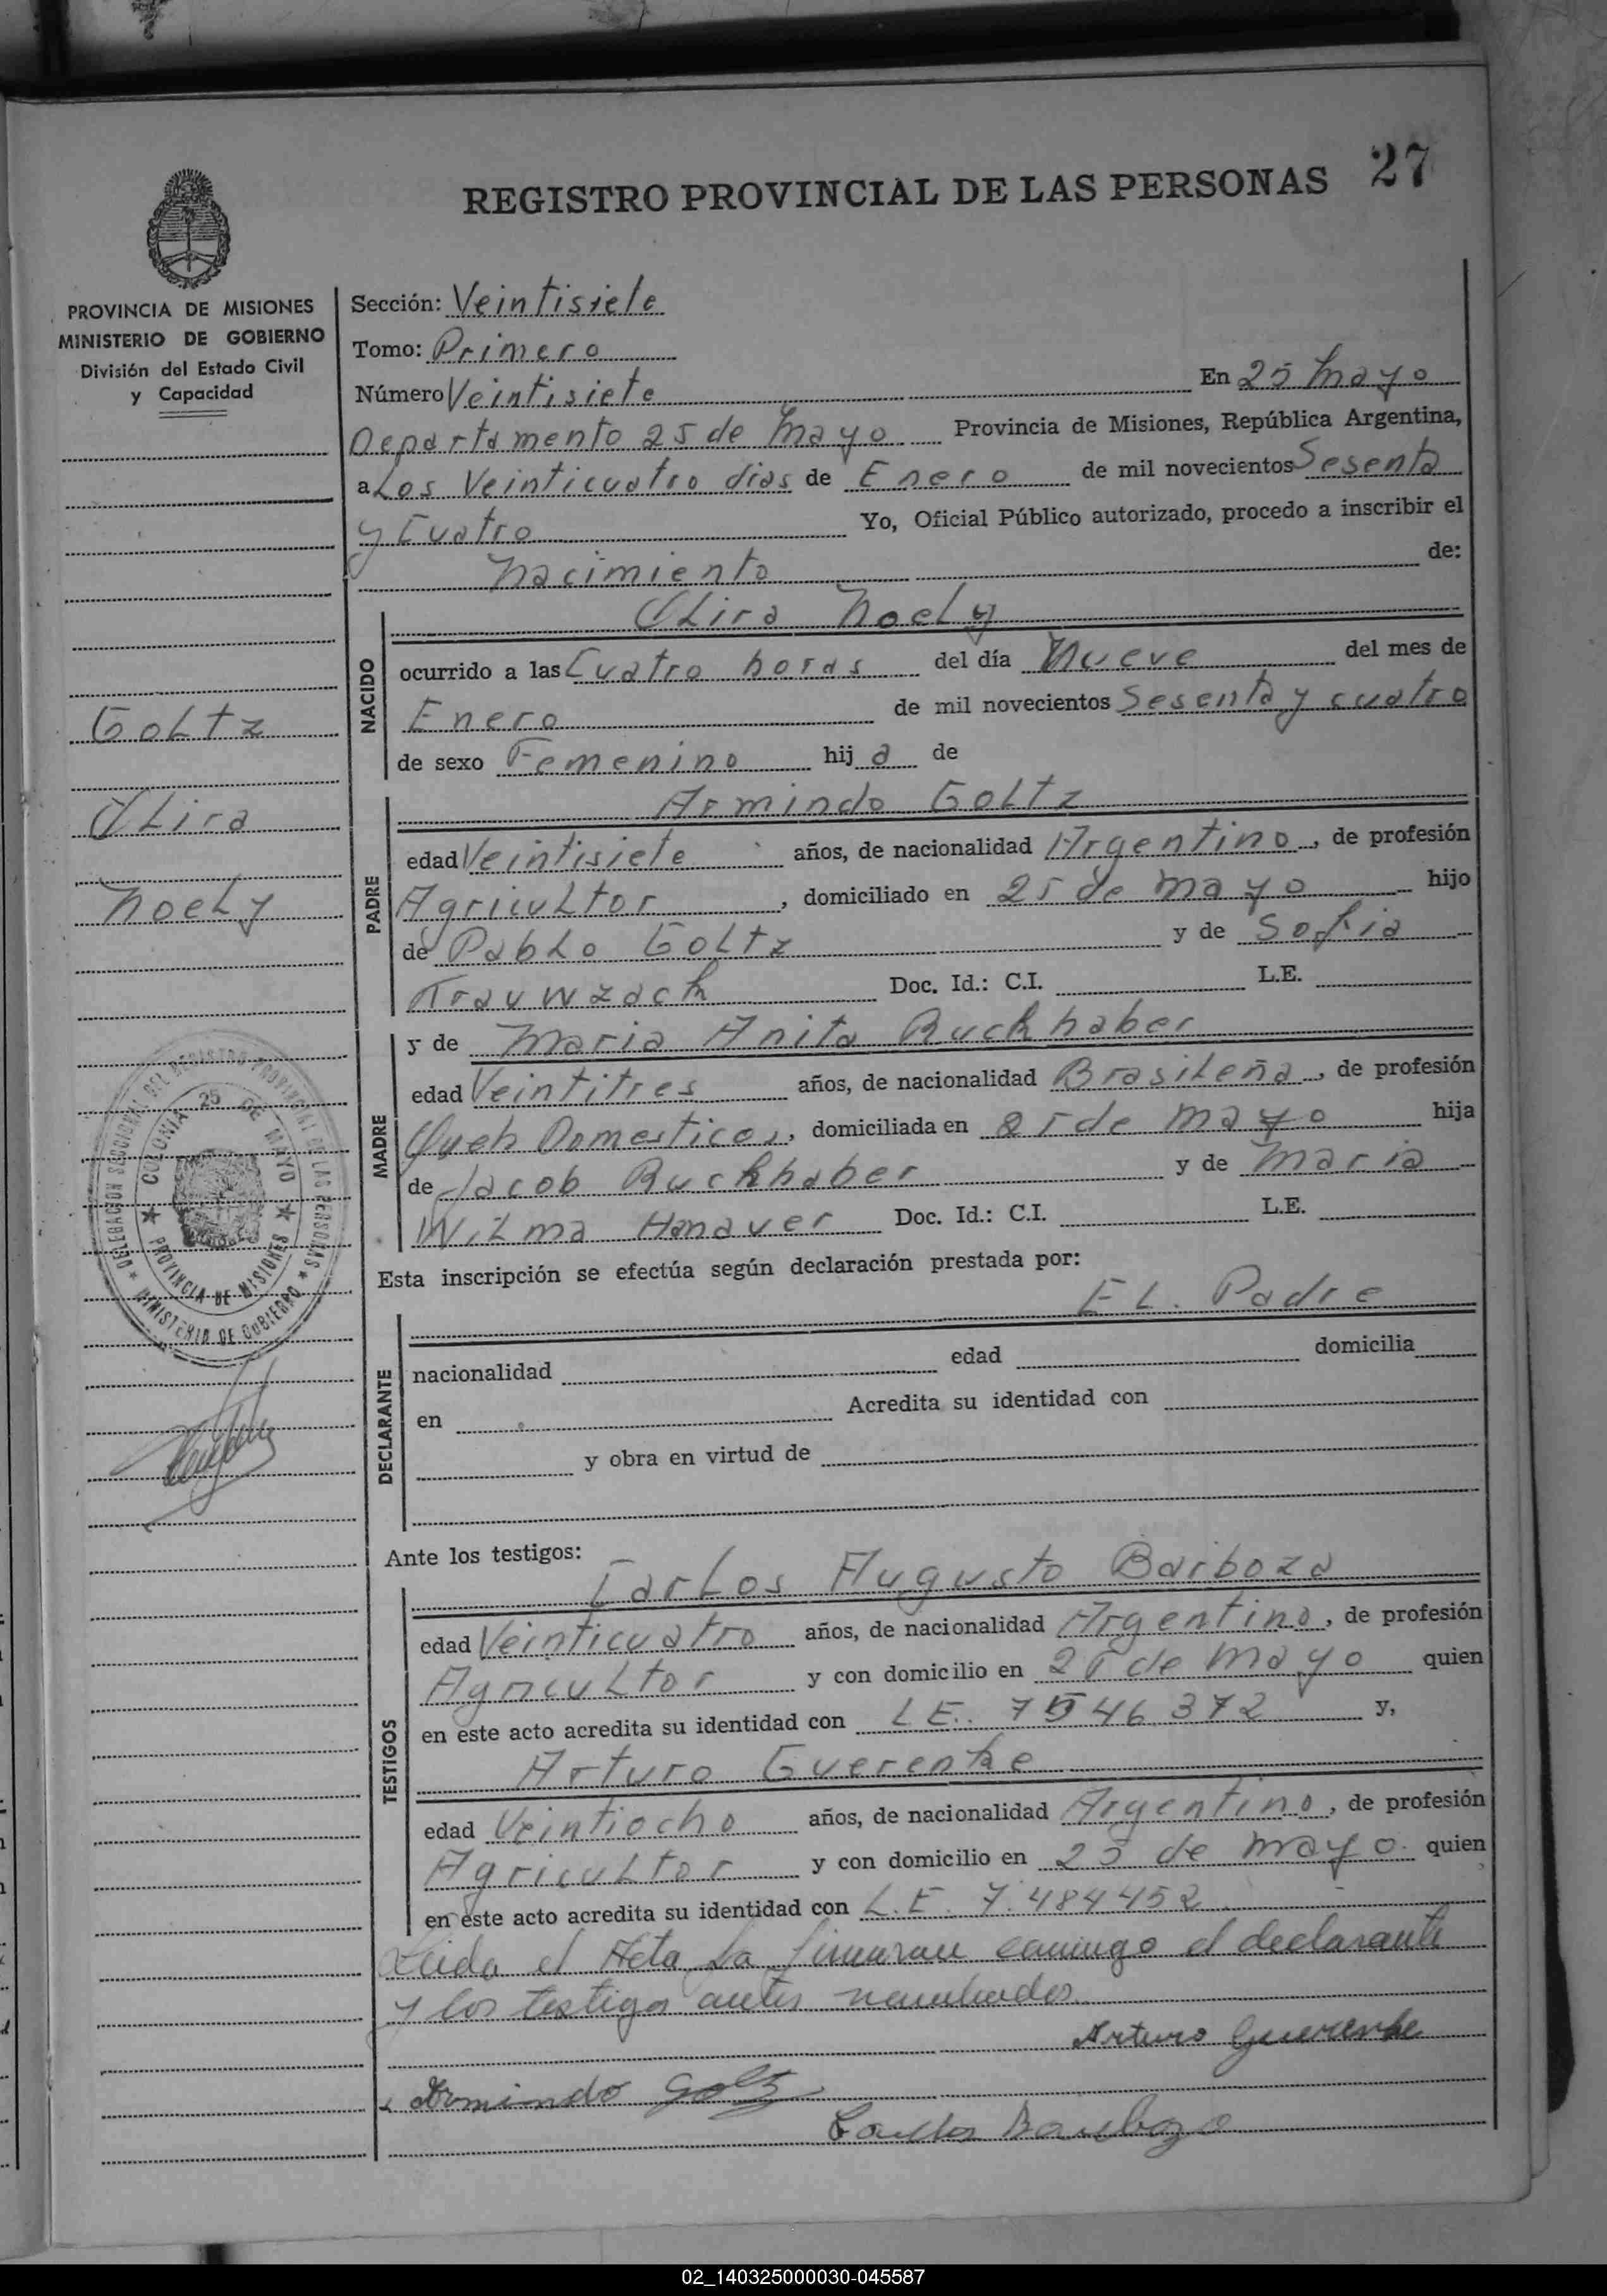 27
REGISTRO PROVINCIAL DE LAS PERSONAS
PROVINCIA DE MISIONES
MINISTERIO DE GOBIERNO
División del Estado Civil
y Capacidad
Goltz
Noely
DELEGACION SECCIONAL DEL REGISTRO PROVINCIAL DE LAS PERSONAS
MINISTERIO DE GOBIERNO
COLONIA 25 DE MAYO
PROVINCIA DE MISIONES
Sección: Veintisiete
Tomo: Primero
Número Veintisiete En 25 Mayo
Departamento 25 de Mayo Provincia de Misiones, República Argentina,
a Los Veinticuatro dias de Enero de mil novecientos Sesenta
y Cuatro Yo, Oficial Público autorizado, procedo a inscribir el
Nacimiento de:
Noely
NACIDO
ocurrido a las Cuatro horas del día Nueve del mes de
Enero de mil novecientos Sesenta y cuatro
de sexo Femenino hij a de
Armindo Goltz
PADRE
edad Veintisiete años, de nacionalidad Argentino, de profesión
Agricultor, domiciliado en 25 de Mayo hijo
de Pablo Goltz y de Sofia
Doc. Id.: C.I. L.E.
y de Maria Anita Buckhaber
MADRE
edad Veintitres años, de nacionalidad Brasileña, de profesión
Domesticos, domiciliada en 25 de Mayo hija
de Jacob Buckhaber y de Maria
Wilma Hanauer Doc. Id.: C.I. L.E.
Esta inscripción se efectúa según declaración prestada por:
EL. Padre
DECLARANTE
nacionalidad edad domicilia
en Acredita su identidad con
y obra en virtud de
Ante los testigos:
Carlos Augusto Barboza
TESTIGOS
edad Veinticuatro años, de nacionalidad Argentino, de profesión
Agricultor y con domicilio en 25 de Mayo quien
en este acto acredita su identidad con L.E. 7546372 y,
Arturo Guerenke
edad Veintiocho años, de nacionalidad Argentino, de profesión
Agricultor y con domicilio en 25 de Mayo quien
en este acto acredita su identidad con L.E. 7.484452
Leida el Acta la firmaron conmigo el declarante
y los testigos antes nombrados
Arturo Guerenke
Armindo Goltz
Carlos Barboza
02_140325000030-045587